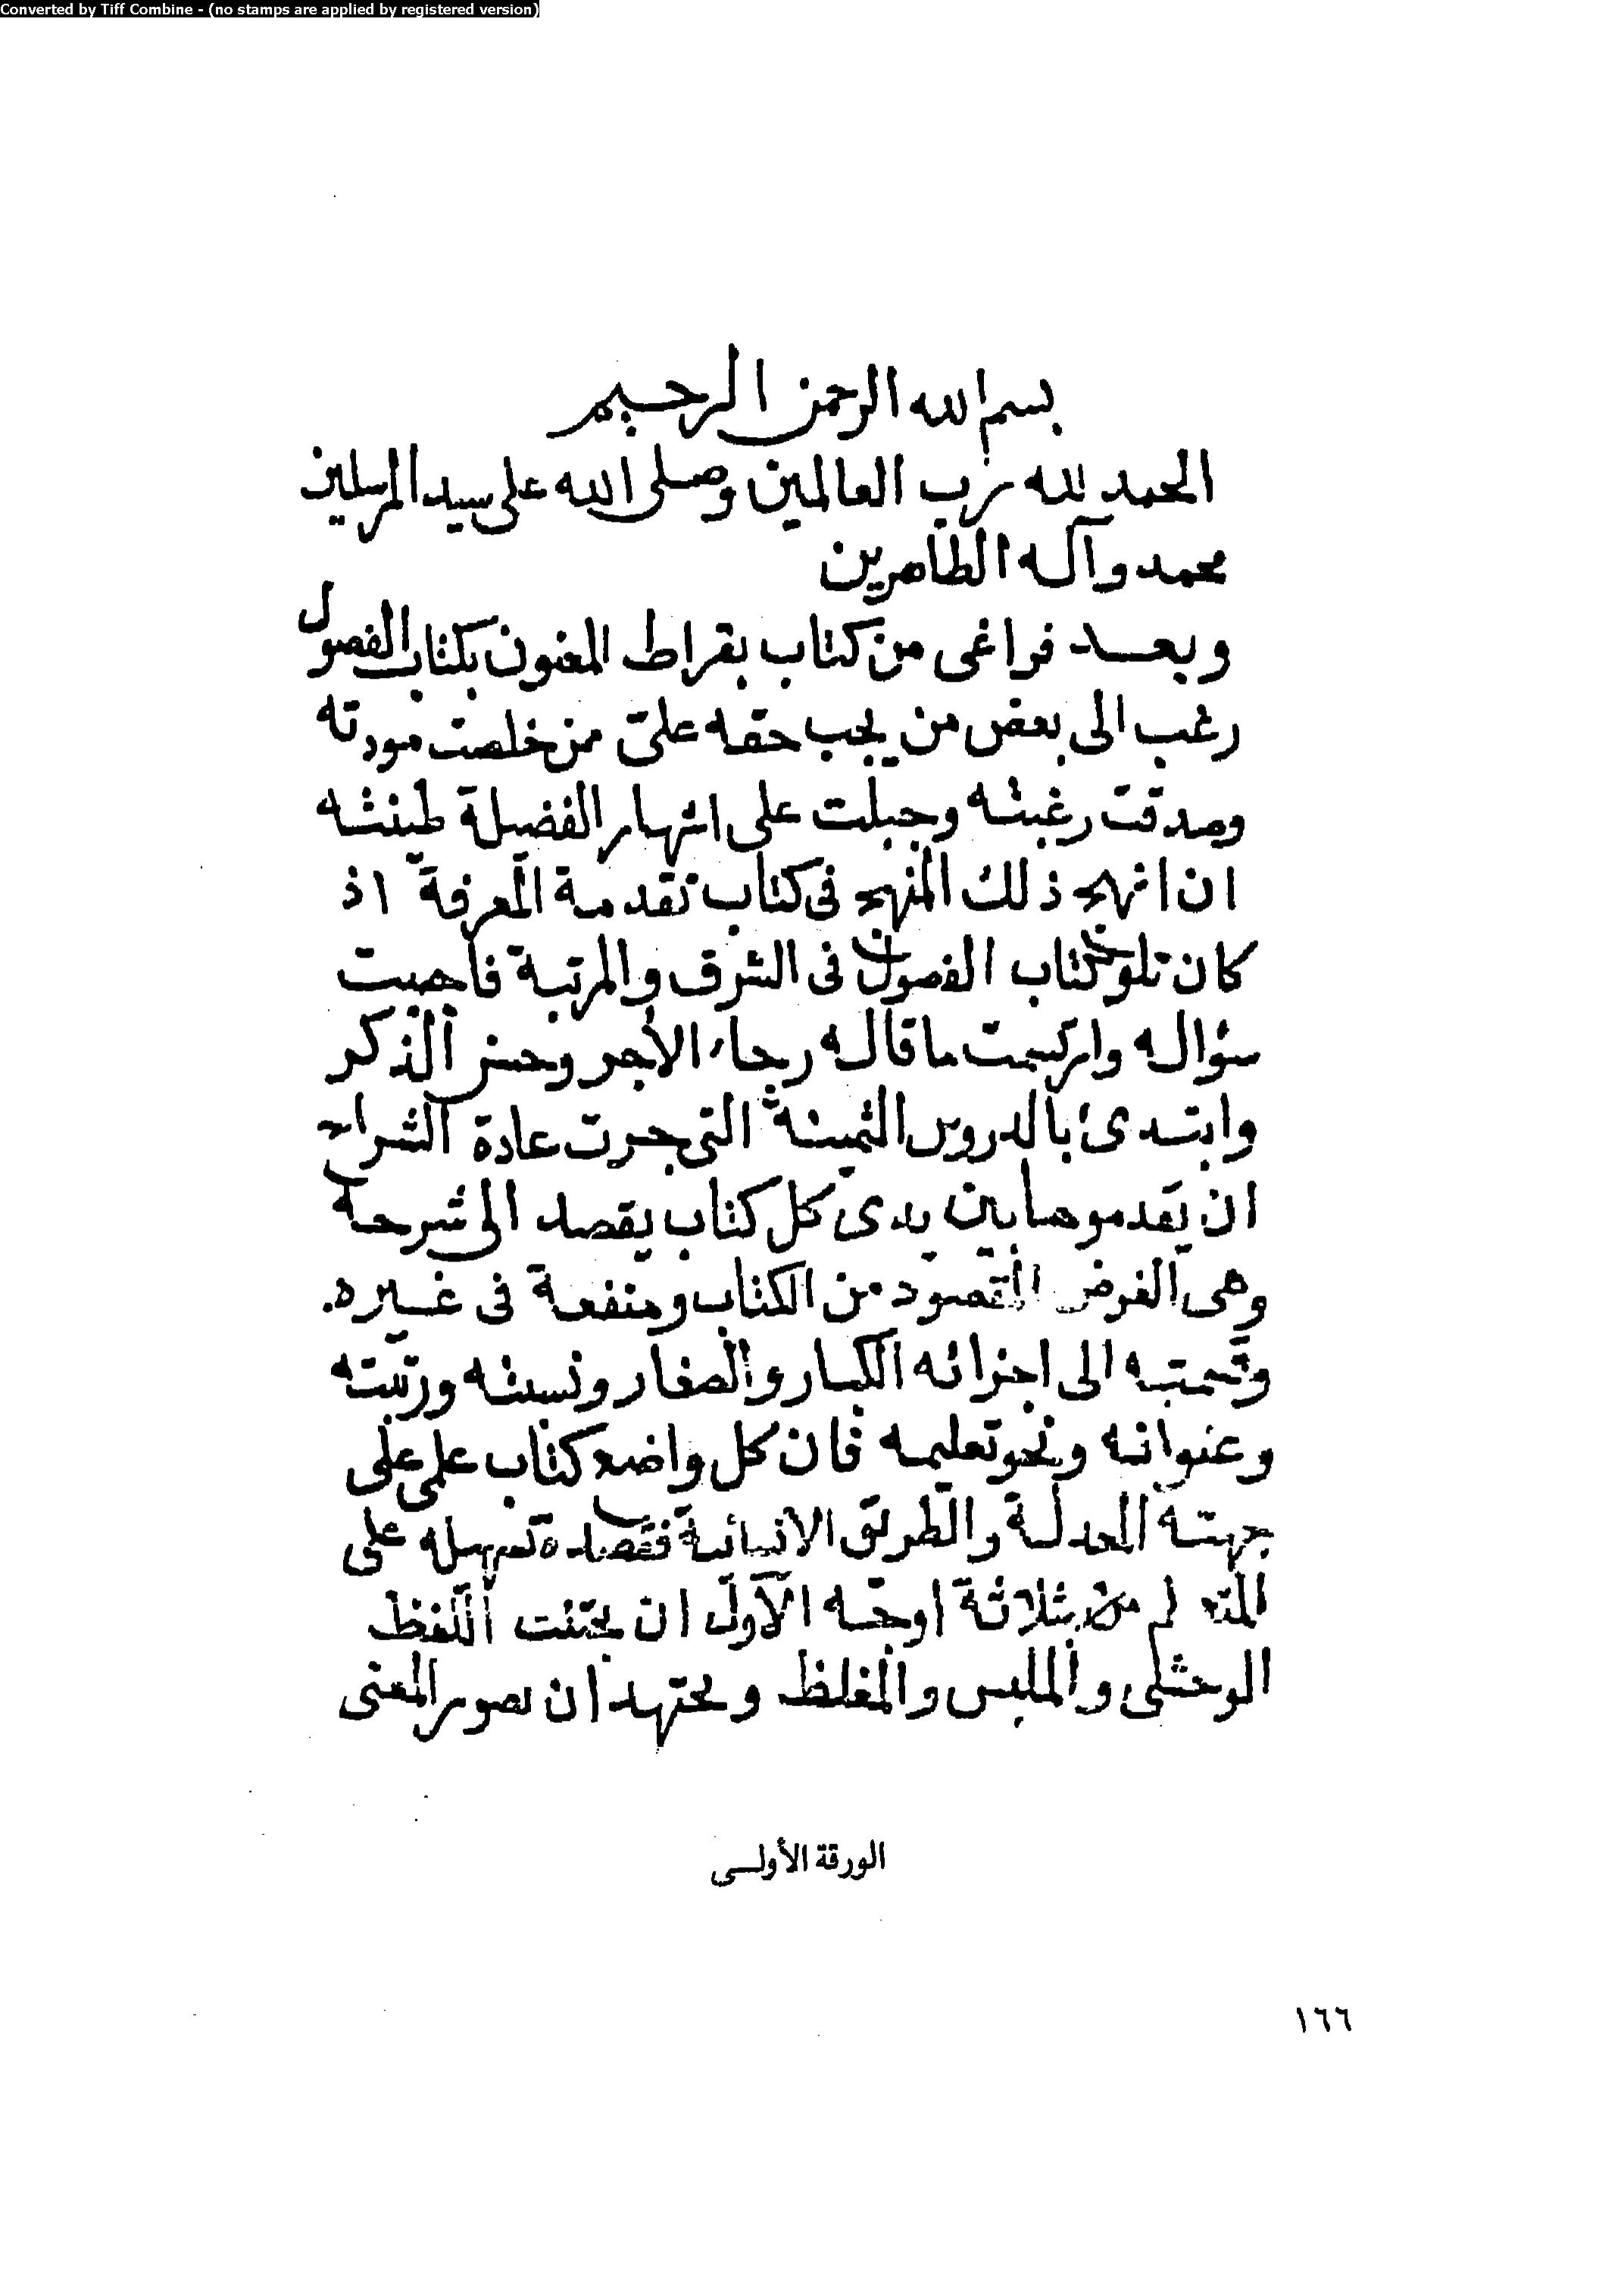 Converted by Tiff Combine - (no stamps are applied by registered version)
بسم الله الرحمن الرحيم
الحمد لله رب العالمين وصلى الله على سيد المرسلين
محمد وآله الطاهرين
وبعد فراغى من كتاب بقراط المعنون بكتاب الفصول
رغب الى بعض من يجب حقه علىّ ممن خلصت مودته
وصدقت رغبته وجبلت على اشهار الفضيلة طينته
ان انهج ذلك المنهج فى كتاب تقدمة المعرفة اذ
كان تلو كتاب الفصول فى الشرف والمرتبة فأجبت
سؤاله وارتسمت ما قاله رجاء الأجر وحسن الذكر
وابتدئ بالدروس الثمينة التى جرت عادة الشراح
ان يقدموها بين يدى كل كتاب يقصد الى شرحه
وهى الغرض المقصود من الكتاب ومنفعة فى غيره
وقسمته الى اجزائه الكبار والصغار ونسبته ورتبته
وعنوانه ونحو تعليمه فان كل واضع كتاب علمى على
جهته المعدلة والطريق الانسانية فقصده تسهله على
بثلاثة اوجه الأول ان يجتنب اللفظ
الوحشى والملبس والمغلظ ويجتهد ان يصور المعنى
الورقة الأولى
١٦٦